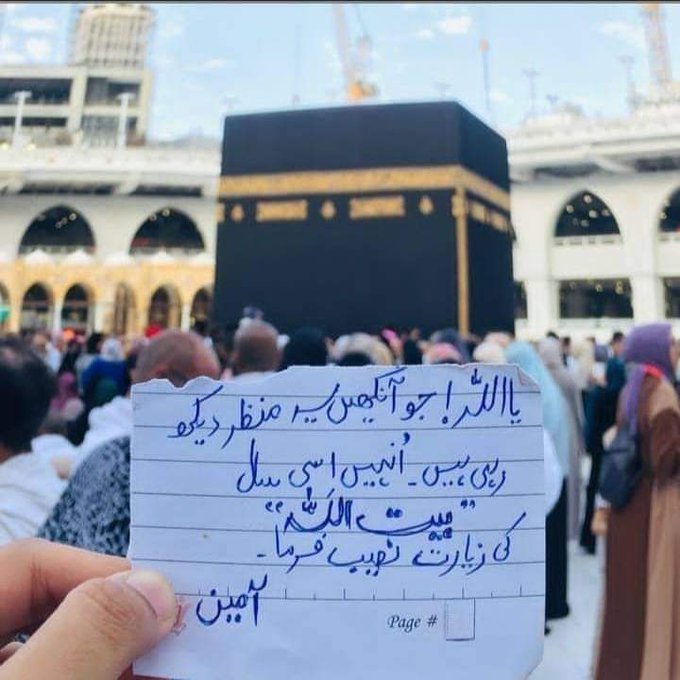 یااللہ! جو آنکھیں یہ منظر دیکھ
رہی ہیں۔ اُنہیں اسی سال
"بیت اللہ"
کی زیارت نصیب فرما۔
آمین
Page #